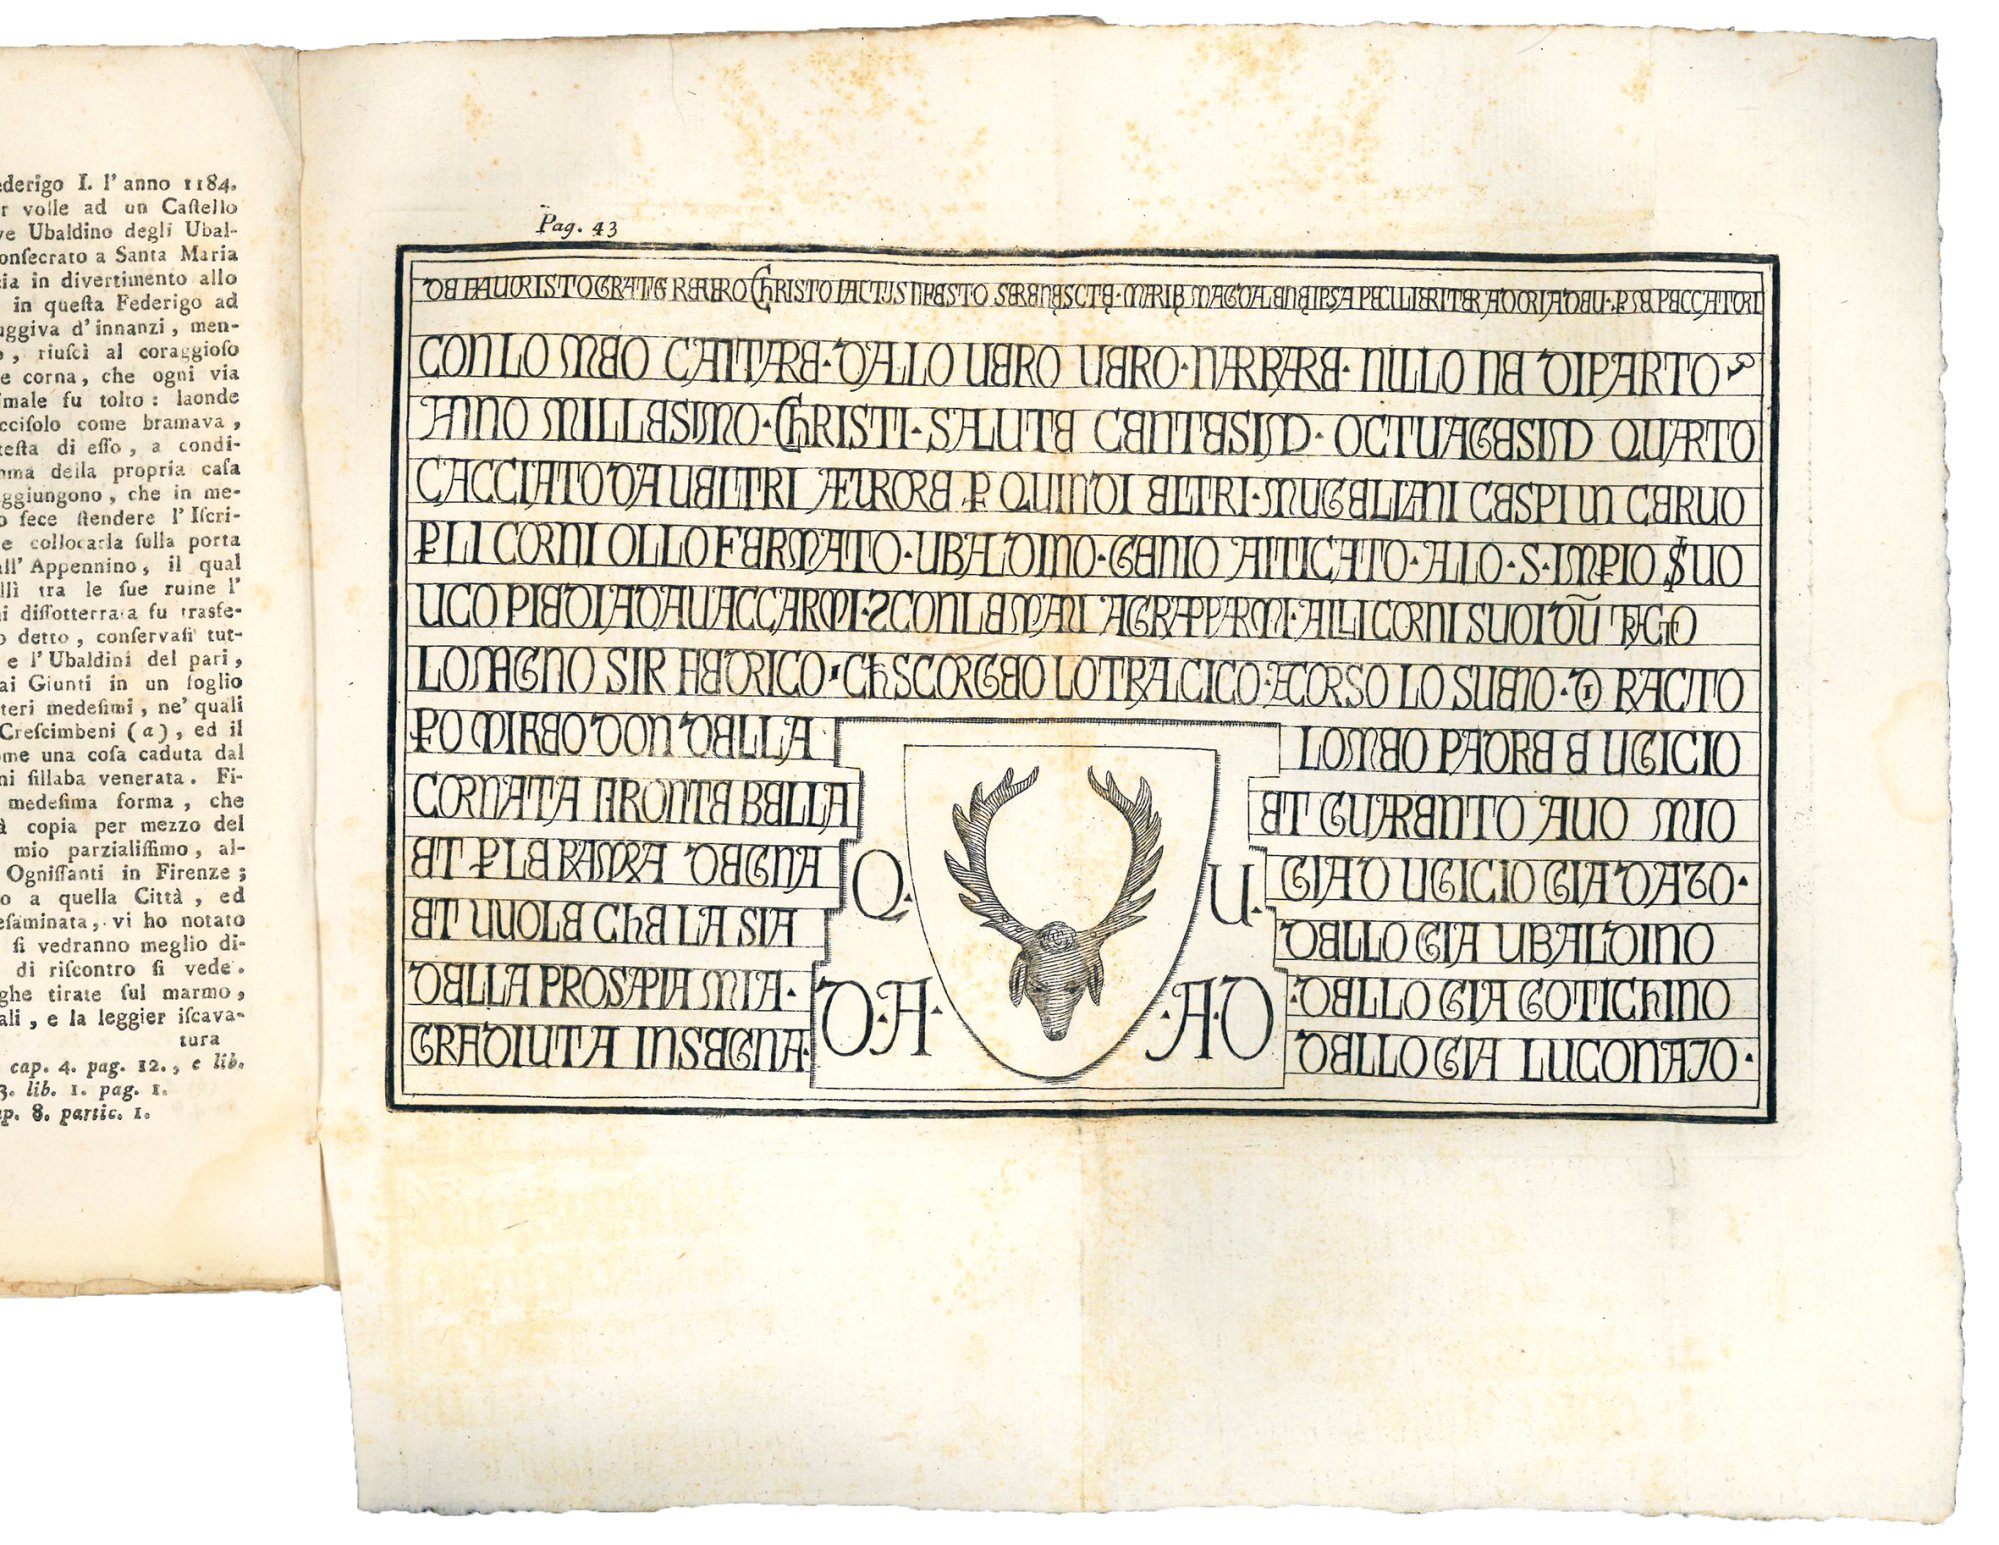 ederigo I. l' anno 1184.
r volle ad un Caſtello
ve Ubaldino degli Ubal-
onſecrato a Santa Maria
ia in divertimento allo
in queſta Federigo ad
uggiva d' innanzi, men-
o, riuſcì al coraggioſo
e corna, che ogni via
imale fu tolto: laonde
cciſolo come bramava,
teſta di eſſo, a condi-
mma della propria caſa
ggiungono, che in me-
o fece ſtendere l' Iſcri-
e collocarla ſulla porta
all' Appennino, il qual
llì tra le ſue ruine l'
ni diſſotterrata fu trasfe-
o detto, conſervaſi tut-
e l' Ubaldini del pari,
ai Giunti in un foglio
tteri medeſimi, ne' quali
Creſcimbeni (a), ed il
ome una coſa caduta dal
ni ſillaba venerata. Fi-
medeſima forma, che
à copia per mezzo del
mio parzialiſſimo, al-
Ogniſſanti in Firenze;
o a quella Città, ed
eſaminata, vi ho notato
ſi vedranno meglio di-
di riſcontro ſi vede.
ghe tirate ſul marmo,
ali, e la leggier iſcava-
tura
cap. 4. pag. 12., e lib.
3. lib. 1. pag. 1.
ap. 8. partic. 1.
Pag. 43
DE FAVORISTO GRATE REFERO CHRISTO FACTUS IN FESTO SERENE SCTE · MARIE MAGDALENE IPSA PECULIERITER ADORI AD DEU · P ME PECCATORI
CON LO MEO CANTARE · DALO VERO VERO · NARRARE · NILLO NE DIPARTO
ANNO MILLESIMO · CHRISTI · SALUTE CENTESIMO · OCTUAGESIMO QUARTO
CACCIATO DA VELTRI A FURORE P QUINDI ELTRI · MUGELLANI CESPI UN CERVO
P LI CORNI OLLO FERMATO · UBALDINO · GENIO ANTICATO · ALO · S · IMPIO SERVO
UCO PIEDI AD AVACCARMI · ET CON LE MANI AGRAPPARMI · ALLI CORNI SUOI
LO MAGNO SIR FEDRICO · CHE SCORGEO LO TRALCICO · ACORSO LO SUENO · DI FACTO
PO MI FEO DON DELLA
CORNATA FRONTE BELLA
ET P LE RAMORA DEGNA
ET VUOLE CHE LA SIA
DELLA PROSAPIA MIA ·
GRADIUTA INSEGNA ·
Q · U ·
D · A · · A · D
LO MEO PADRE E UGICIO
ET GUARENTO AVO MIO
GIA D UGICIO GIA DAZO ·
DELLO GIA UBALDINO
· DELLO GIA GOTICHINO
DELLO GIA LUCONAZO ·